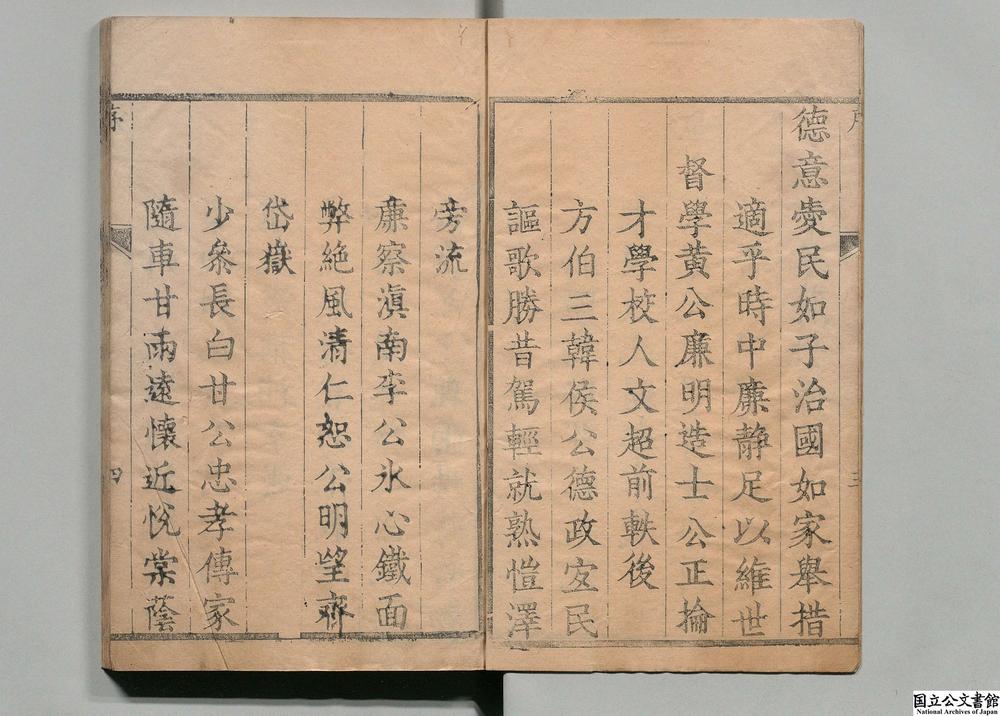 德意愛民如子治國如家舉措
適乎時中廉静足以維世
督學黃公廉明造士公正掄
才學校人文超前軼後
方伯三韓侯公德政宜民
謳歌勝昔駕輕就熟愷澤
旁流
廉察滇南李公氷心鐵面
弊絶風清仁恕公明望齊
岱嶽
少叅長白甘公忠孝傳家
隨車甘雨遠懷近悅棠蔭
序
三
四
国立公文書館
National Archives of Japan